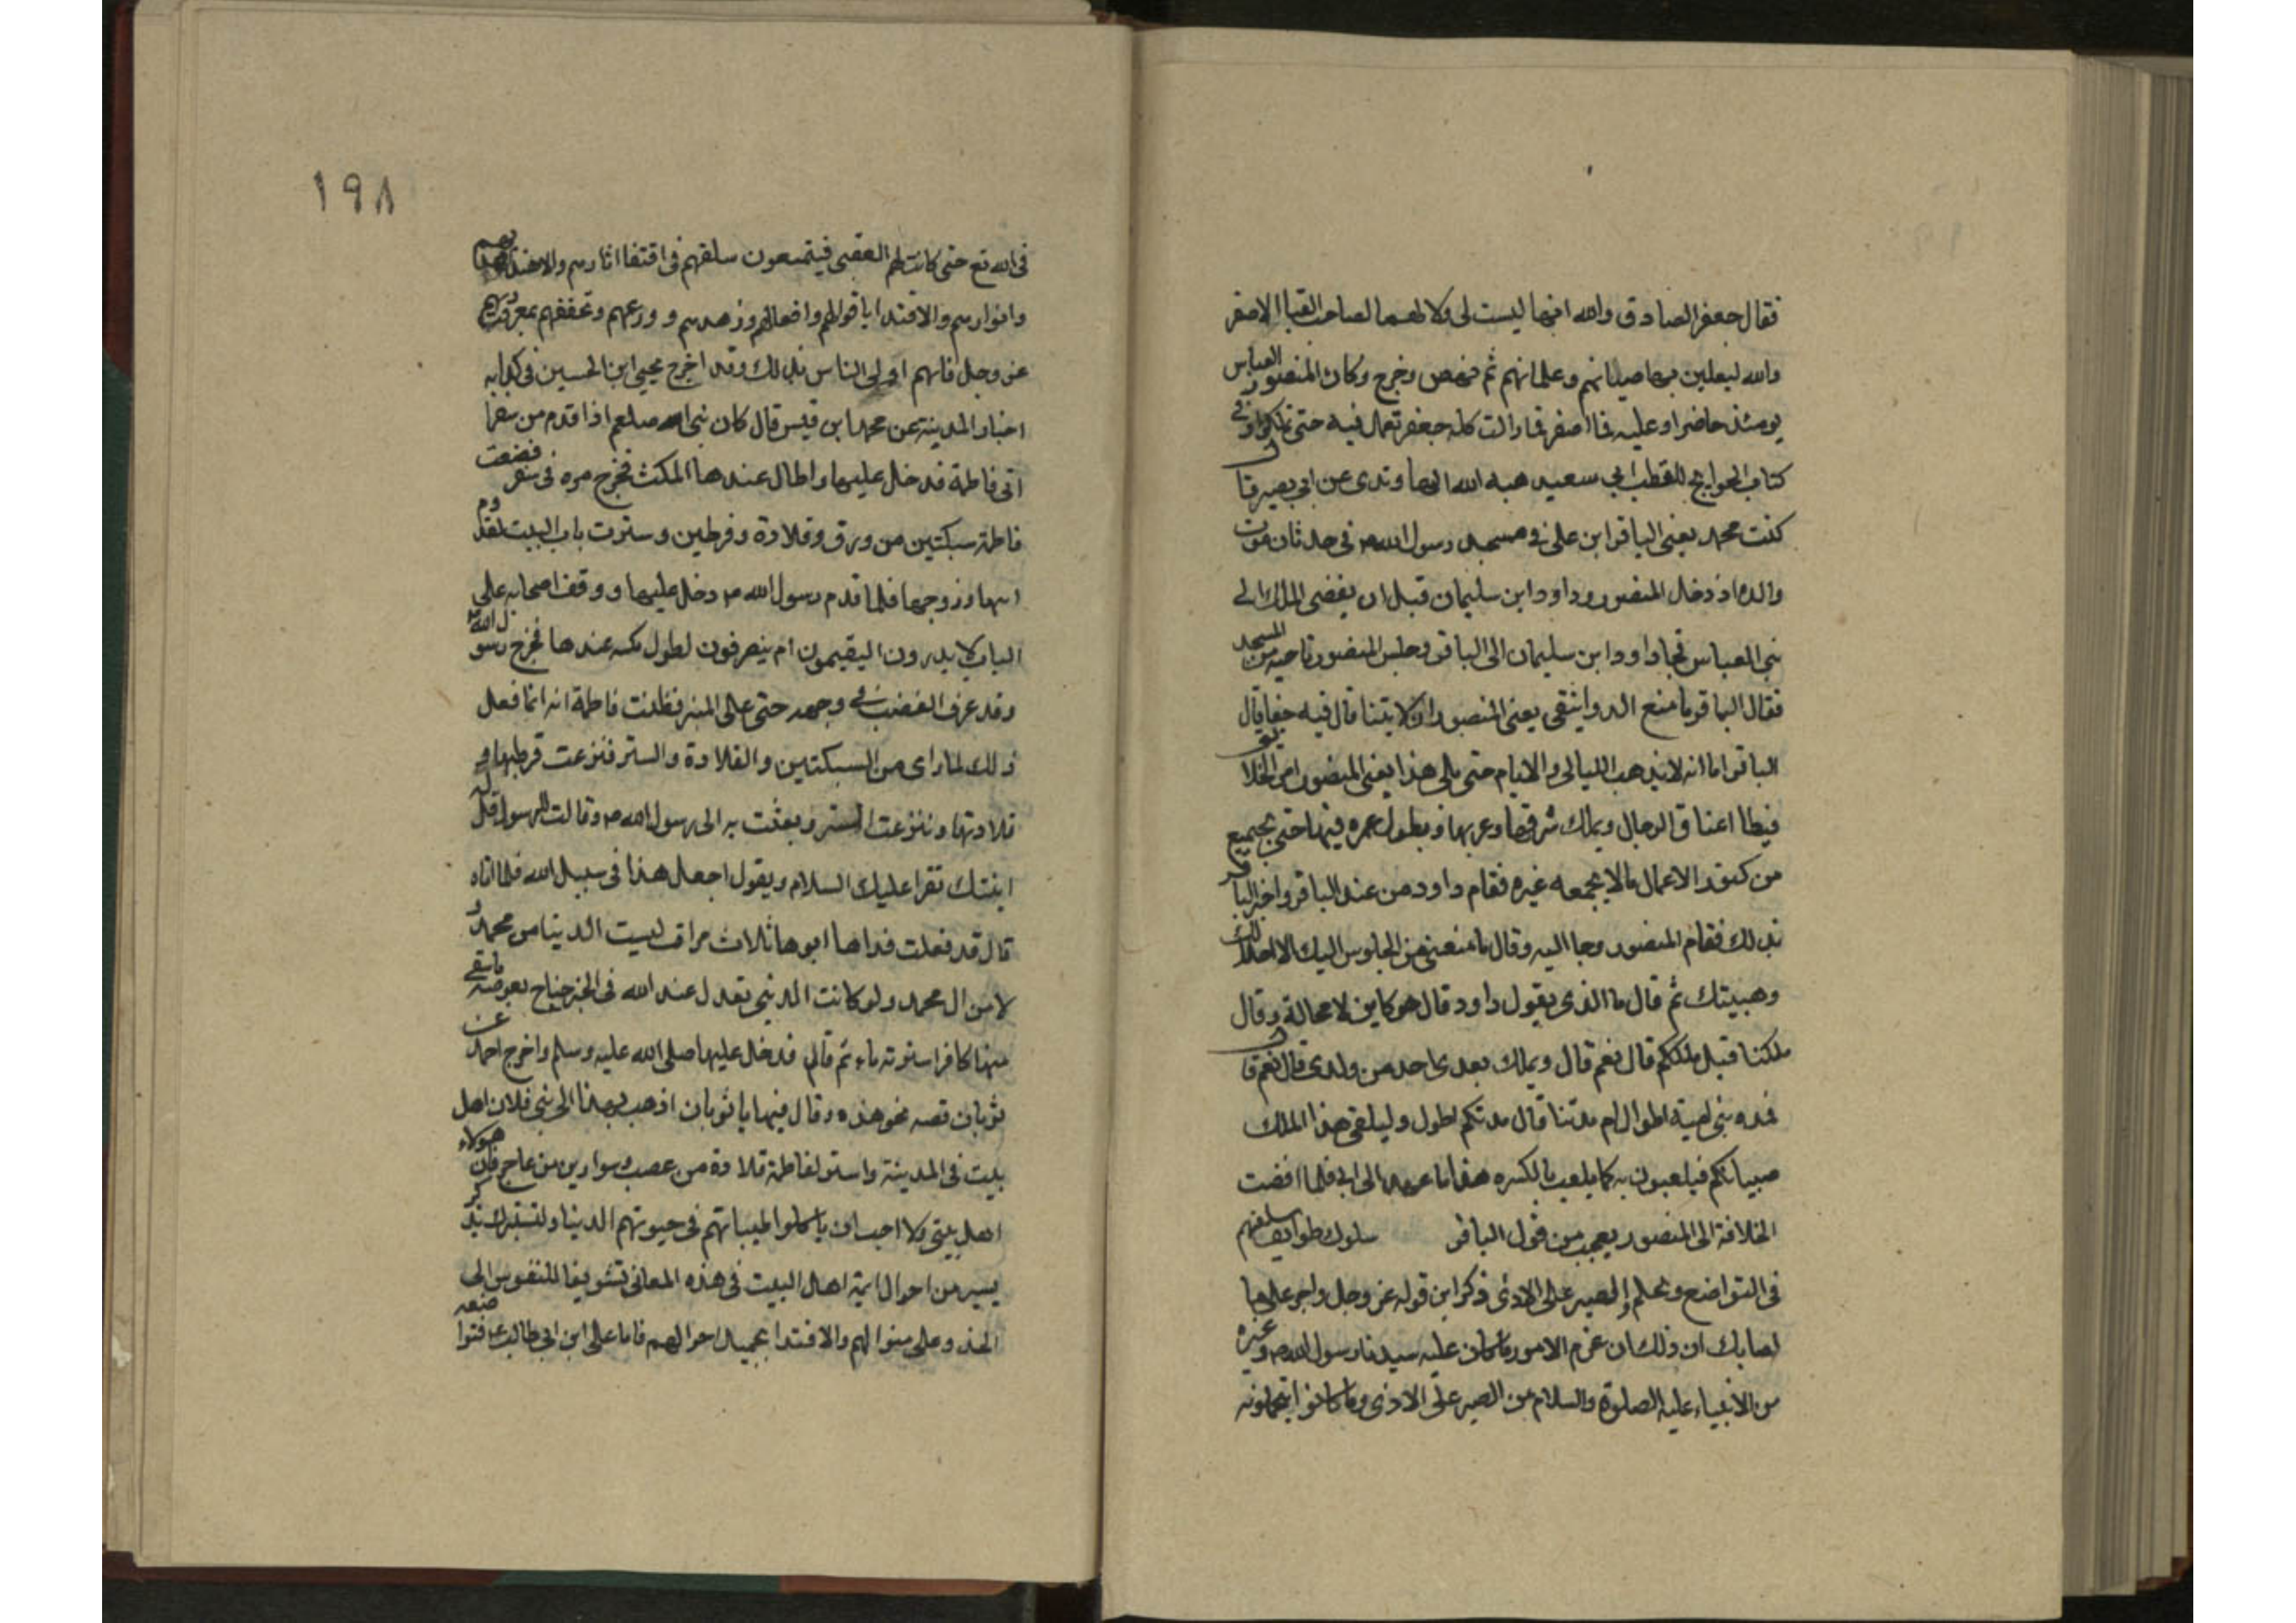 فقال جعفر الصادق والله انها ليست لى ولا لهما لصاحب القبا الاصفر
والله ليعلبن بها صبيانهم وغلمانهم ثم نهض وخرج وكان المنصور العباسي
يومئذ حاضرا وعليه قبا اصفر فما زالت كلمة جعفر تعمل فيه حتى ملكوا وفى
كتاب الخوايج للقطب ابي سعيد هبه الله الراوندى عن ابي بصير قال
كنت محمد يعنى الباقر ابن على فى مسجد رسول الله ص فى حدثان موت
والده اذ دخل المنصور وداود ابن سليمان قبل ان يفضى الملك الى
بنى العباس فجا داود ابن سليمان الى الباقر وجلس المنصور ناحيه من المسجد
فقال الباقر ما منع الدوانيقى يعنى المنصور ان لا يتنا قال فيه جفا قال
الباقر اما انه لا يذهب الليالى والايام حتى يلى هذا يعنى المنصور امر الخلايق
فيطا اعناق الرجال ويملك شرقها وغربها ويطول عمره فيها حتى يجمع
من كنوز الاعمال مالا يجمعه غيره فقام داود من عند الباقر واخبر الباقر
بذلك فقام المنصور وجا اليه وقال ما منعنى من الجلوس اليك الا اجلالك
وهيبتك ثم قال ما الذى يقول داود قال هو كاين لا محالة وقال
ملكنا قبل ملككم قال نعم قال ويملك بعدى احد من ولدى قال نعم قال
فمده بنى امية اطول ام مدتنا قال مدتكم اطول وليلقى هذا الملك
صبيانكم فيلعبون به كما يلعب بالكره هذا ما عهده الى ابي فلما افضت
الخلافة الى المنصور يعجب من قول الباقر سلوك طوايف سلفهم
فى التواضع وتحلم والصبر على الاذى ذكر ابن قوله عز وجل واصبر على ما
اصابك ان ذلك ان عزم الامور ما كان عليه سيدنا رسول الله ص وغيره
من الانبياء عليه الصلوة والسلام من الصبر على الاذى وما كانوا يتحملونه
١٩٨
فى الله تع حتى كانت لهم العقبى فيتبعون سلفهم فى اقتفا اثارهم والاهتدا بهديهم
وانوارهم والاقتدا باقوالهم وافعالهم وزهدهم وورعهم وتعففهم
عز وجل فانهم اولى الناس بذلك وقد اخرج يحيى ابن الحسين فى كتابه
اخبار المدينة عن محمد ابن قيس قال كان نبى الله صلعم اذا قدم من سفر
اتى فاطمة فدخل عليها واطال عندها المكث فخرج مره فى سفر فصنعت
فاطمة سبكتين من ورق وقلادة وقرطين وسترت باب البيت لقدوم
ابيها وزوجها فلما قدم رسول الله ص دخل عليها ووقف اصحابه على
الباب لا يدرون اليقيمون ام ينصرفون لطول مكسه عندها فخرج رسول الله ص
وقد عرف الغضب فى وجهه حتى على المنبر فظنت فاطمة انه انما فعل
ذلك لما راى من السبكتين والقلادة والستر فنزعت قرطيها و
قلادتها ونزعت الستر وبعثت به الى رسول الله ص وقالت للرسول قل له
ابنتك تقرا عليك السلام ويقول اجعل هذا فى سبيل الله فلما اتاه
قال قد فعلت فداها ابوها ثلاث مرات ليست الدينا من محمد و
لا من ال محمد ولو كانت الدنيى تعدل عند الله فى الخير جناح بعوضه ما سقى
منها كافرا شربه ماء ثم قام فدخل عليها صلى الله عليه وسلم واخرج احمد عن
ثوبان قصه نحو هذه وقال فيها يا ثوبان اذهب بهذا الى بنى فلان اهل
بيت فى المدينة واشتر لفاطمة قلادة من عصب وسوارين من عاج فان هولاء
اهل بيتى ولا احب ان ياكلوا طيباتهم فى حيوتهم الدينا ولنتبرك بذكر
يسير من احوال ايمة اهل البيت فى هذه المعانى تشويقا للنفوس الى
الحذو على منوالهم والاقتدا بجميل احوالهم فاما على ابن ابي طالب ع